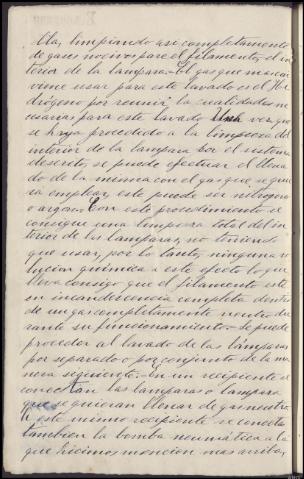 ella, limpiando asi completamento
de gases nocivos para el filamento, el in-
terior de la lampara. El gas que mas con-
viene usar para este lavado es el Hi-
drógeno por reunir la cualidades ne-
cesarias para este lavado Una vez que
se haya procedido a la limpieza del
interior de la lampara por el sistema
descreto, se puede efectuar el llena-
do de la misma con el gas que se que-
ra emplear, este puede ser nitrogeno
o argon. Con este procedimiento se
consigue una limpieza total del in-
terior de las lamparas, no teniendo
que usar, por lo tanto, ninguna so-
lucion quimica a este efecto lo que
lleva consigo que el filamento esté
en incandescencia completa dentro
de un gas completamente neutro du-
rante su funcionamiento. Se puede
proceder al lavado de las lamparas
por separado o por conjunto de la ma-
nera siguiente. En un recipiente se
conectan las lamparas o lampara
que se quieran llenar de gas neutro
a este mismo recipiente se conecta
tambien la bomba neumática a la
que hicimos moncion mas arriba,